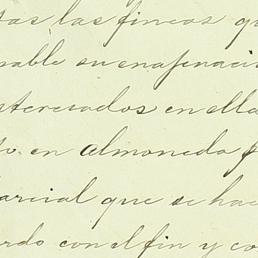 tas las fincas q
rable su enagenaci
nteresados en ella
to en almoneda p
arcial que se hac
erdo con el fin y co